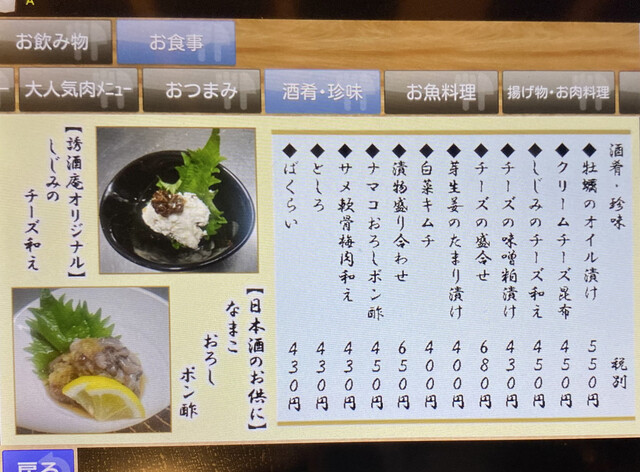 A
お飲み物
お食事
ー
大人気肉メニュー
おつまみ
酒肴・珍味
お魚料理
揚げ物・お肉料理
酒肴・珍味 税別
◆牡蠣のオイル漬け 550円
◆クリームチーズ昆布 450円
◆しじみのチーズ和え 450円
◆チーズの味噌粕漬け 430円
◆チーズの盛合せ 680円
◆芽生姜のたまり漬け 400円
◆白菜キムチ 400円
◆漬物盛り合わせ 650円
◆ナマコおろしポン酢 450円
◆サメ軟骨梅肉和え 430円
◆としろ 430円
◆ばくらい 430円
【誘酒庵オリジナル】
しじみの
チーズ和え
【日本酒のお供に】
なまこ
おろし
ポン酢
戻る